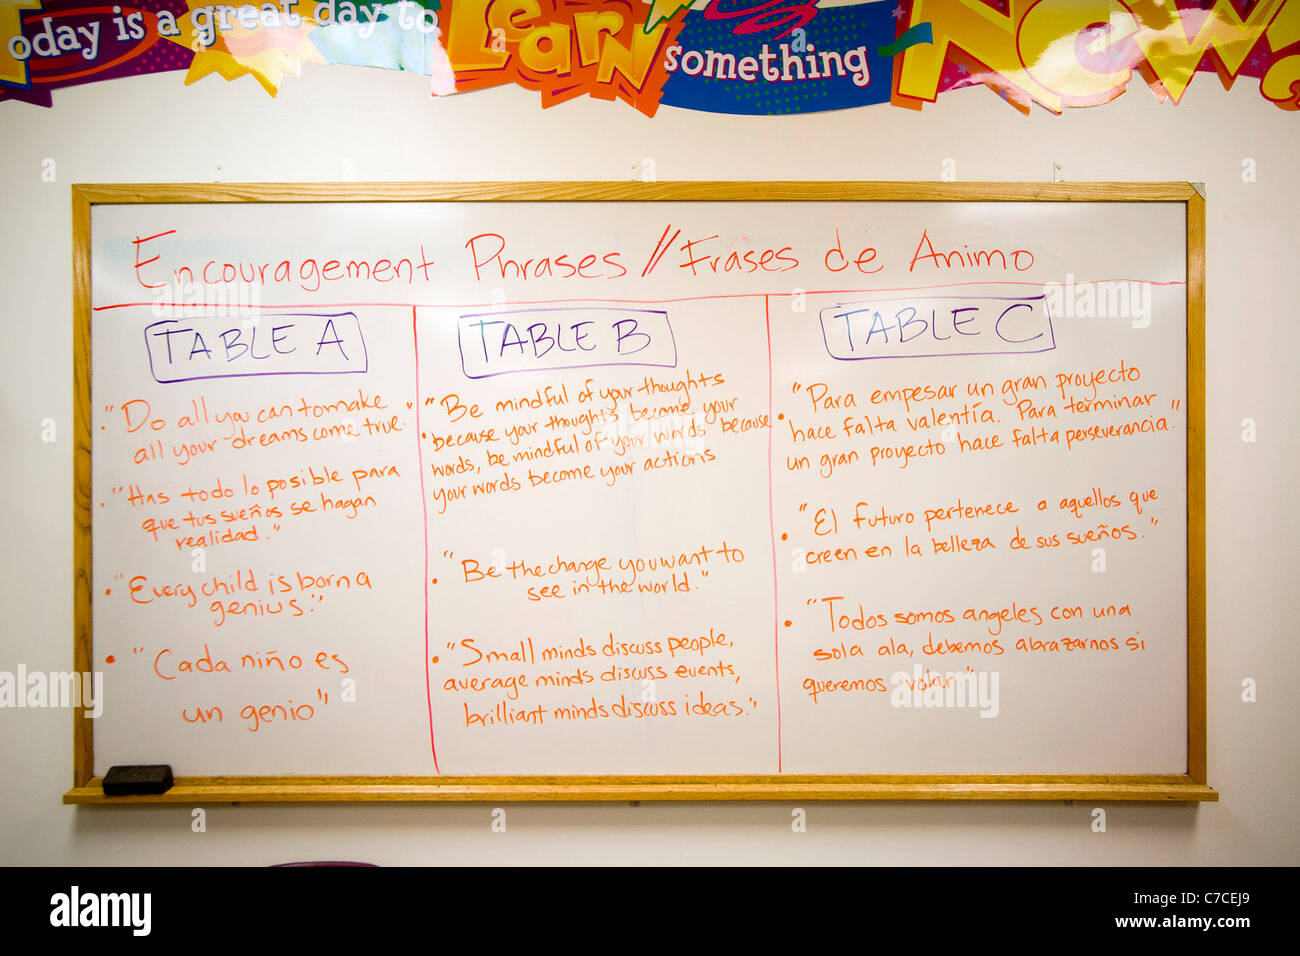 oday is a great day to
Learn
something
New
Encouragement Phrases // Frases de Animo
TABLE A
• "Do all you can to make
all your dreams come true."
• "Has todo lo posible para
que tus sueños se hagan
realidad."
• "Every child is born a
genius."
• "Cada niño es
un genio"
TABLE B
• "Be mindful of your thoughts
because your thoughts become your
words, be mindful of your words because
your words become your actions
• "Be the change you want to
see in the world."
• "Small minds discuss people,
average minds discuss events,
brilliant minds discuss ideas."
TABLE C
• "Para empesar un gran proyecto
hace falta valentía. Para terminar
un gran proyecto hace falta perseverancia."
• "El futuro pertenece a aquellos que
creen en la belleza de sus sueños."
• "Todos somos angeles con una
sola ala, debemos abrazarnos si
queremos volar."
alamy
Image ID: C7CEJ9
www.alamy.com